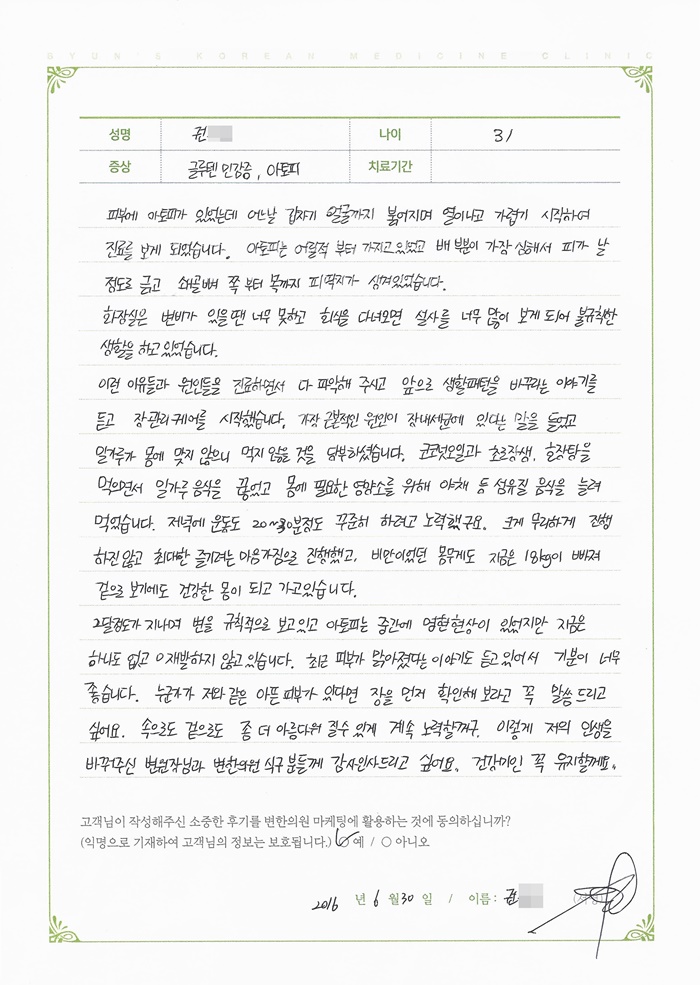 BYUN'S KOREAN MEDICINE CLINIC
성명 권 나이 31
증상 글루텐 민감증, 아토피 치료기간
피부에 아토피가 있었는데 어느날 갑자기 얼굴까지 붉어지며 열이나고 가렵기 시작하여
진료를 보게 되었습니다. 아토피는 어릴적 부터 가지고 있었고 배 부분이 가장 심해서 피가 날
정도로 긁고 쇄골뼈 쪽 부터 목까지 피딱지가 생겨있었습니다.
화장실은 변비가 있을땐 너무 못하고 회식을 다녀오면 설사를 너무 많이 보게 되어 불규칙한
생활을 하고 있었습니다.
이런 이유들과 원인들을 진료하면서 다 파악해 주시고 앞으로 생활패턴을 바꾸라는 이야기를
듣고 장관리케어를 시작했습니다. 가장 근본적인 원인이 장내세균에 있다는 말을 들었고
밀가루가 몸에 맞지 않으니 먹지 않을 것을 당부하셨습니다. 코코넛오일과 초르장생, 효장탕을
먹으면서 밀가루 음식을 끊었고 몸에 필요한 영양소를 위해 야채 등 섬유질 음식을 늘려
먹었습니다. 저녁에 운동도 20~30분정도 꾸준히 하려고 노력했구요. 크게 무리하게 진행
하진 않고 최대한 즐기려는 마음가짐으로 진행했고, 비만이었던 몸무게도 지금은 18kg이 빠져
겉으로 보기에도 건강한 몸이 되고 가고있습니다.
2달정도가 지나며 변을 규칙적으로 보고있고 아토피는 중간에 명현현상이 있었지만 지금은
하나도 없고 재발하지 않고 있습니다. 최근 피부가 맑아졌다는 이야기도 듣고 있어서 기분이 너무
좋습니다. 누군가가 저와 같은 아픈 피부가 있다면 장을 먼저 확인해 보라고 꼭 말씀 드리고
싶어요. 속으로도 겉으로도 좀 더 아름다워 질수 있게 계속 노력할꺼구. 이렇게 저의 인생을
바꾸주신 변원장님과 변한의원 식구 분들께 감사인사드리고 싶어요. 건강미인 꼭 유지할께요.
고객님이 작성해주신 소중한 후기를 변한의원 마케팅에 활용하는 것에 동의하십니까?
(익명으로 기재하여 고객님의 정보는 보호됩니다.) ○ 예 / ○ 아니오
2016 년 6 월 30 일 / 이름: 권